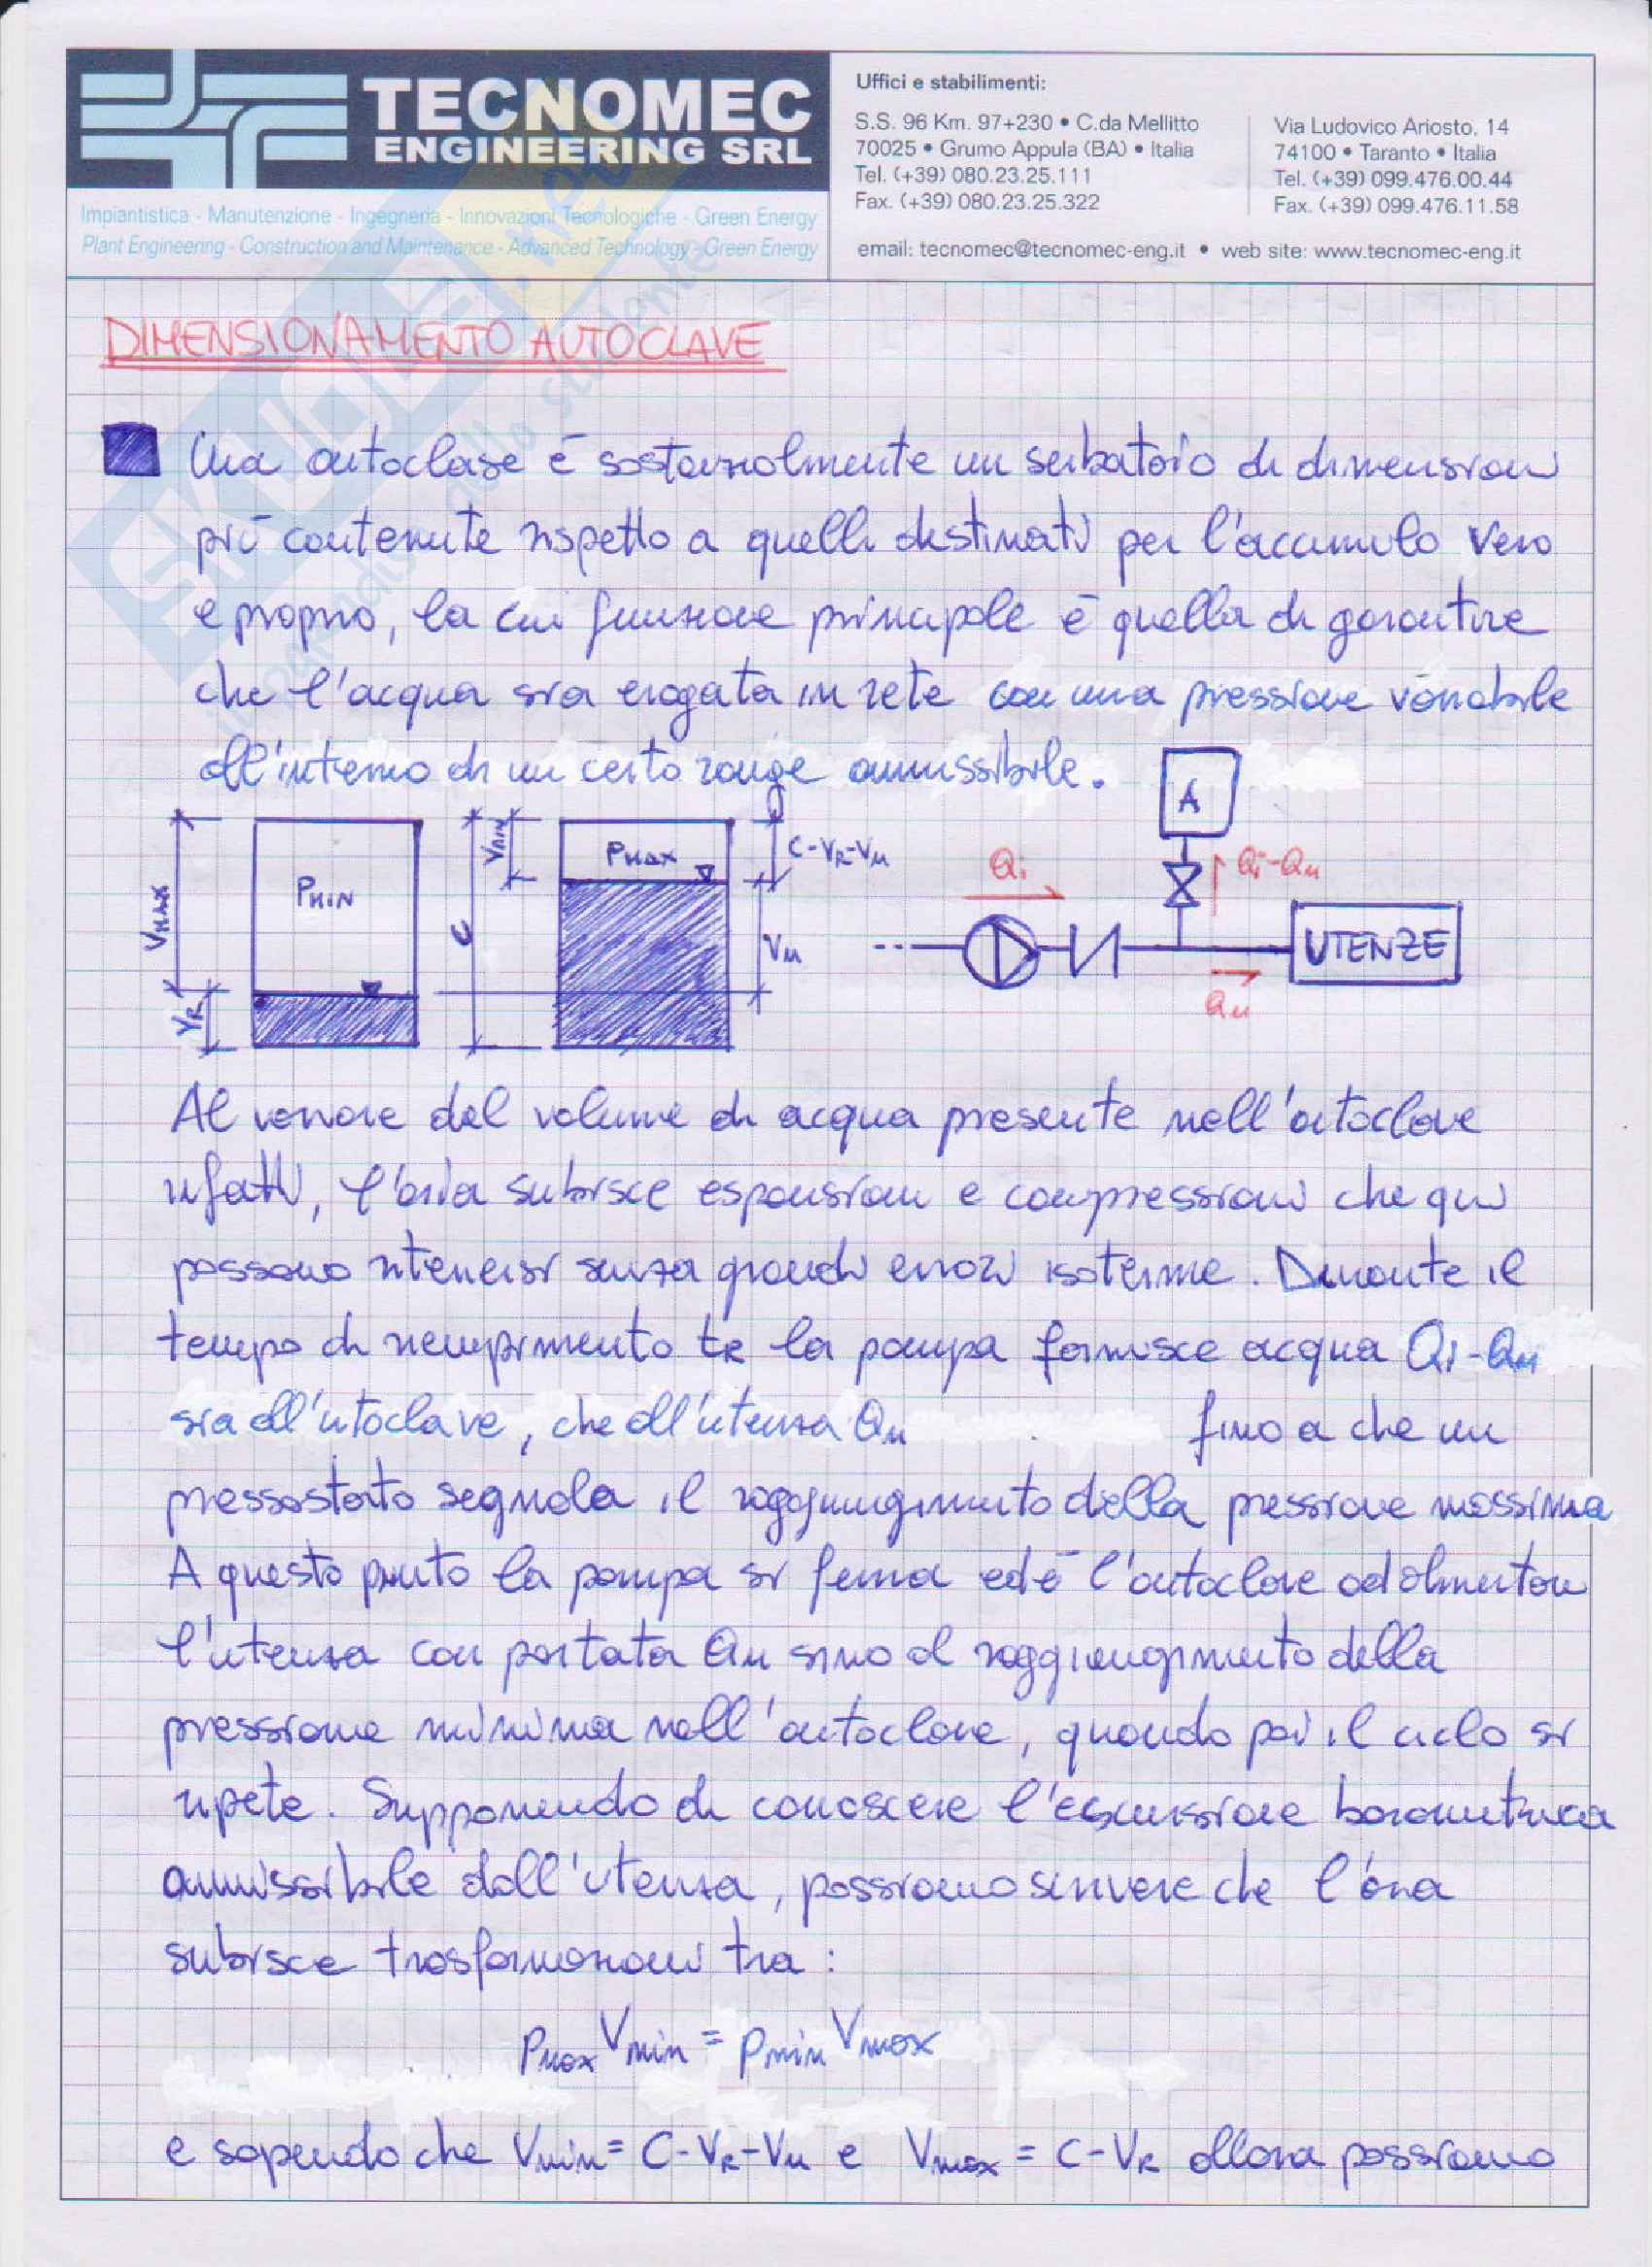 TECNOMEC
ENGINEERING SRL
Impiantistica - Manutenzione - Ingegneria - Innovazioni Tecnologiche - Green Energy
Plant Engineering - Construction and Maintenance - Advanced Technology - Green Energy
Uffici e stabilimenti:
S.S. 96 Km. 97+230 • C.da Mellitto
70025 • Grumo Appula (BA) • Italia
Tel. (+39) 080.23.25.111
Fax. (+39) 080.23.25.322
Via Ludovico Ariosto, 14
74100 • Taranto • Italia
Tel. (+39) 099.476.00.44
Fax. (+39) 099.476.11.58
email: tecnomec@tecnomec-eng.it • web site: www.tecnomec-eng.it
DIMENSIONAMENTO AUTOCLAVE
Una autoclave è sostanzialmente un serbatoio di dimensioni
più contenute rispetto a quelli destinati per l'accumulo vero
e proprio, la cui funzione principale è quella di garantire
che l'acqua sia erogata in rete con una pressione variabile
all'interno di un certo range ammissibile.
VMAX
VR
PMIN
C
VMIN
PMAX
C-VR-Vu
Vu
A
Qi
Qi-Qu
UTENZE
Qu
Al variare del volume di acqua presente nell'autoclave
infatti, l'aria subisce espansioni e compressioni che qui
possono ritenersi senza grandi errori isoterme. Durante il
tempo di riempimento tR la pompa fornisce acqua Qi-Qu
sia all'utoclave, che all'utenza Qu fino a che un
pressostato segnala il raggiungimento della pressione massima
A questo punto la pompa si ferma ed è l'autoclave ad alimentare
l'utenza con portata Qu sino al raggiungimento della
pressione minima nell'autoclave, quando poi il ciclo si
ripete. Supponendo di conoscere l'escursione barometrica
ammissibile dall'utenza, possiamo scrivere che l'aria
subisce trasformazioni tra:
pmax Vmin = pmin Vmax
e sapendo che Vmin = C-VR-Vu e Vmax = C-VR allora possiamo